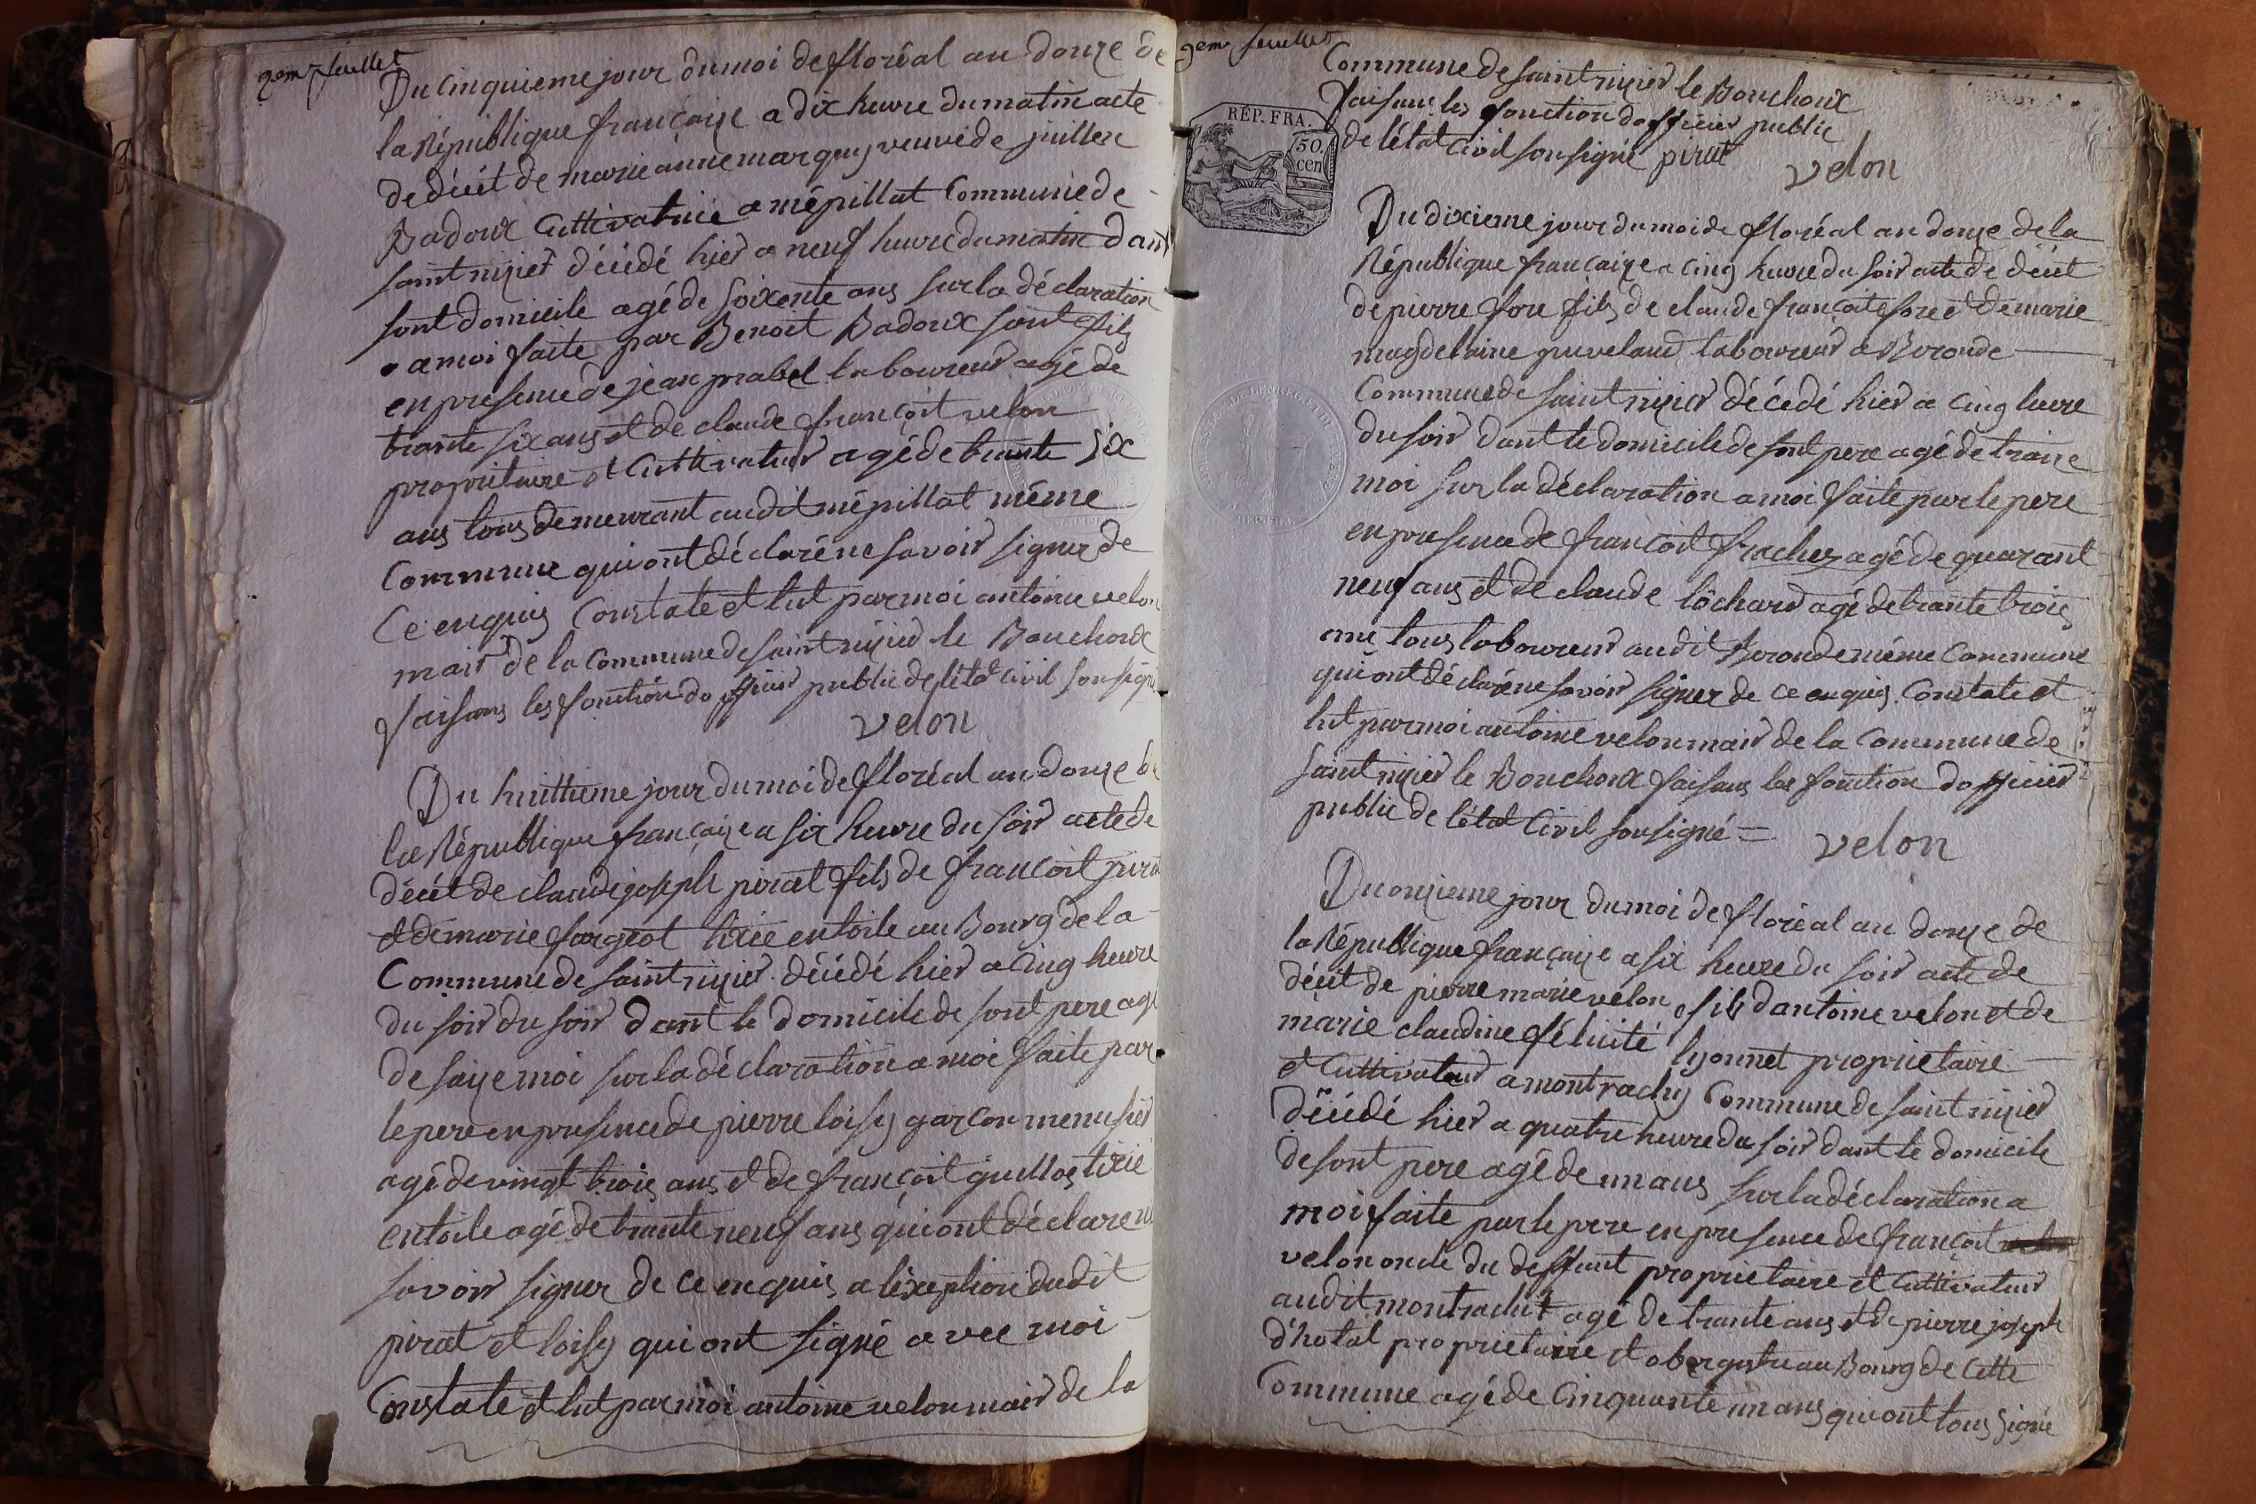 9eme feuillet
Du cinquieme jour du moi de floréal an douze de
la République françaize a dix heure du matin acte
de décét de marie anne marquy veuve de juillen
Badoux Cultivatrice a mépillat Commune de
saint nizier décédé hier a neuf heure du matin dant
sont domicile agé de soixente ans sur la déclaration
a moi faite par Benoit Badoux sont fils
en presence de jean prabel laboureur agé de
trante six ans et de claude françoit velon
propriétaire et Cultivateur agé de trante six
ans tous demeurant audit mépillat même
Commune qui ont déclaré ne savoir signer de
Ce enquis Constate et lut par moi antoine velon
mair de la Commune de saint nizier le Bouchoux
faisans les fonction dofficier public de létat Civil sousigné
velon
Du huittieme jour du moi de floréal an douze de
la République françaize a six heure du soir acte de
décét de claude joseph pirat fils de françoit pirat
et de marie fargeot tixié en toile au Bourg de la
Commune de saint nizier décédé hier a Cinq heure
du soir du soir dant le domicile de sont pere agé
de saize moi sur la déclaration a moi faite par
le pere en presence de pierre loisy garçon menusier
agé de vingt trois ans et de françoit guillos tixié
en toile agé de trante neuf ans qui ont déclare ne
savoir signer de ce enquis a léxeption dudit
pirat et loisy qui ont signé avec moi
Constate et lut par moi antoine velon mair de la
9eme feuillet
Commune de saint nizier le Bouchoux
faisans les fonction dofficier public
de létat Civil sousigné pirat
velon
RÉP. FRA.
50
cen
Du dixieme jour du moi de floréal an douze de la
République françaize a cinq heure du soir acte de décét
de pierre fore fils de claude françoit fore et de marie
magdelaine guvelaud laboureur a Beronde
Commune de saint nizier décédé hier a Cinq heure
du soir dant le domicile de sont pere agé de traize
moi sur la déclaration a moi faite par le pere
en presence de françoit frachez agé de quarant
neuf ans et de claude lôchard agé de trante trois
ans tous laboureur audit Beronde même Commune
qui ont déclaré ne savoir signer de ce enquis Constate et
lut par moi antoine velon mair de la Commune de
saint nizier le Bouchoux faisans les fonction dofficier
public de létat Civil sousigné =
velon
Du onzieme jour du moi de floréal an douze de
la République françaize a six heure du soir acte de
décét de pierre marie velon fils dantoine velon et de
marie claudine félicité lyonnet proprietaire
et Cultivateur a montrachy Commune de saint nizier
décédé hier a quatre heure du soir dant le domicile
de sont pere agé de un ans sur la déclaration a
moi faite par le pere en presence de françoit
velon oncle du deffunt proprietaire et Cultivateur
audit montrachit agé de trante ans et de pierre joseph
d'hotal proprietaire et obergiste au Bourg de Cette
Commune agé de Cinquante un ans qui ont tous signé